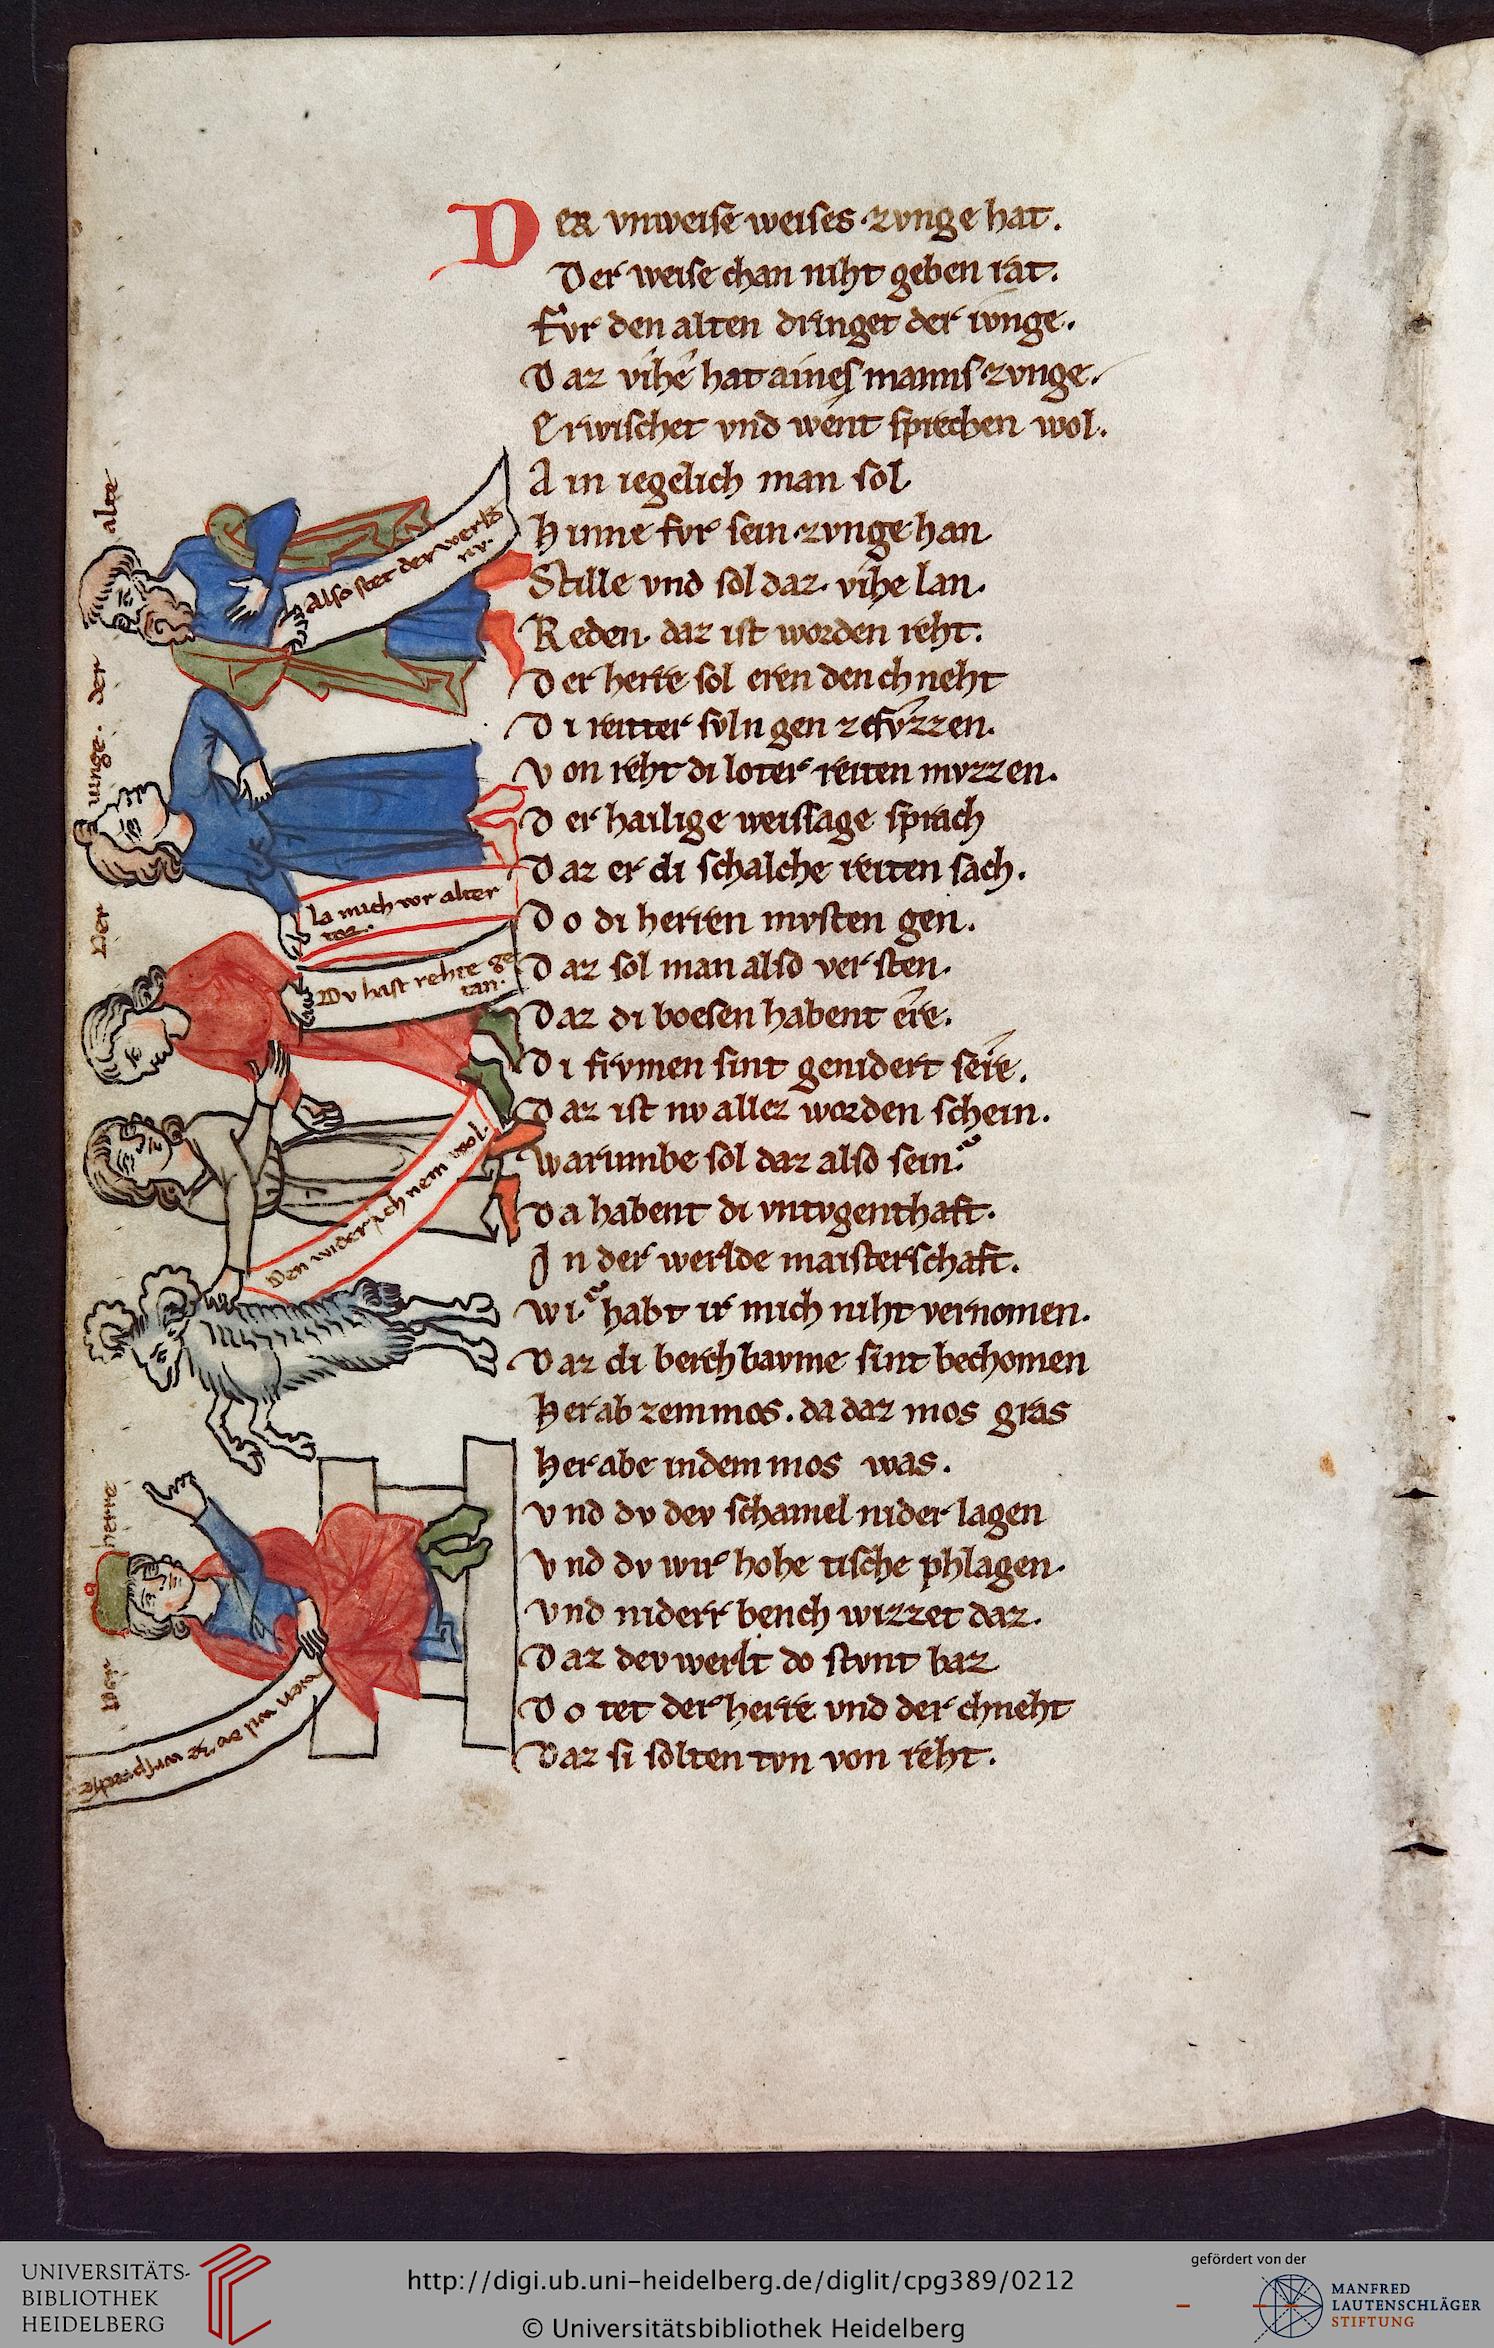 DER vnweise weises zvnge hat.
Der weise chan niht geben rat.
Fvr den alten dringet der ivnge.
Daz vihe hat aines manns zvnge.
Erwischet vnd went sprechen wol.
Ain iegelich man sol
Hinne fvr sein zvnge han
Stille vnd sol daz vihe lan.
Reden. daz ist worden reht.
Der herre sol eren den chneht
Di reitter svln gen zefvzzen.
Von reht di loter reiten mvzzen.
Der hailige weissage sprach
Daz er di schalche reiten sach.
Do di herren mvsten gen.
Daz sol man also versten.
Daz di boesen habent ere.
Di frvmen sint genidert sere.
Daz ist nv allez worden schein.
Warumbe sol daz also sein.
Da habent di vntvgenthaft.
In der werlde maisterschaft.
Wi habt ir mich niht vernomen.
Daz di berchbavme sint bechomen
Herab zem mos. da daz mos gras
Her abe in dem mos was.
Vnd dv dev schamel nider lagen
Vnd dv wir hohe tische phlagen.
Vnd niderr bench wizzet daz.
Daz dev werlt do stvnt baz
Do tet der herre vnd der chneht
Daz si solten tvn von reht.
der alte
Also stet der werlt
nv.
Der iunge.
la mich vor alter
Dv hast rehte ge
tan.
Den wider ich nem wol.
Der herre
UNIVERSITÄTS-
BIBLIOTHEK
HEIDELBERG
http://digi.ub.uni-heidelberg.de/diglit/cpg389/0212
© Universitätsbibliothek Heidelberg
gefördert von der
MANFRED
LAUTENSCHLÄGER
STIFTUNG